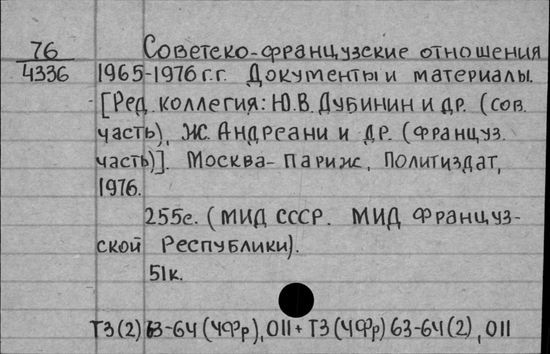 76 Советско-французские отношения
4336 1965-1976 г.г. Документы и материалы.
[Ред. коллегия: Ю.В. Дубинин и др. (сов.
часть), Ж. Андреани и др. (француз.
часть)]. Москва-Париж, Политиздат,
1976.
255с. (МИД СССР. МИД Француз-
ской Республики).
51к.
ТЗ(2)63-64(4Фр),011+ТЗ(4Фр)63-64(2),011